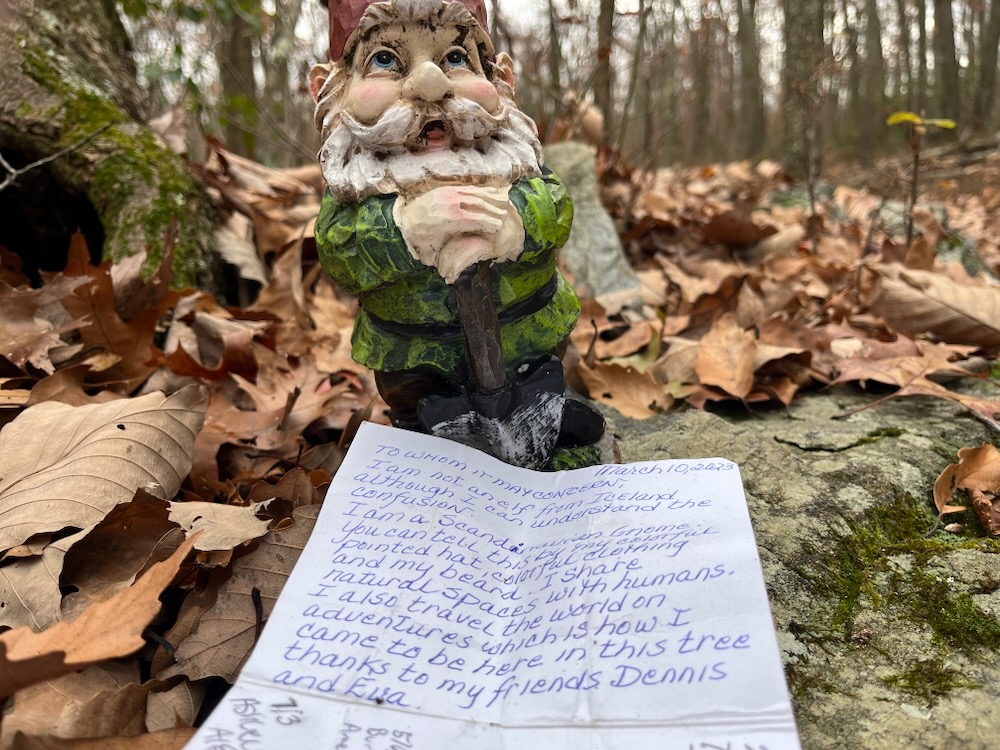 March 10, 2023
TO WHOM IT MAY CONCERN;
I am not an elf from Iceland,
although I can understand the
confusion.
I am a Scandinavian Gnome.
You can tell this by my colorful
pointed hat, colorful clothing
and my beard. I share
natural spaces with humans.
I also travel the world on
adventures which is how I
came to be here in this tree
thanks to my friends Dennis
and
7/3